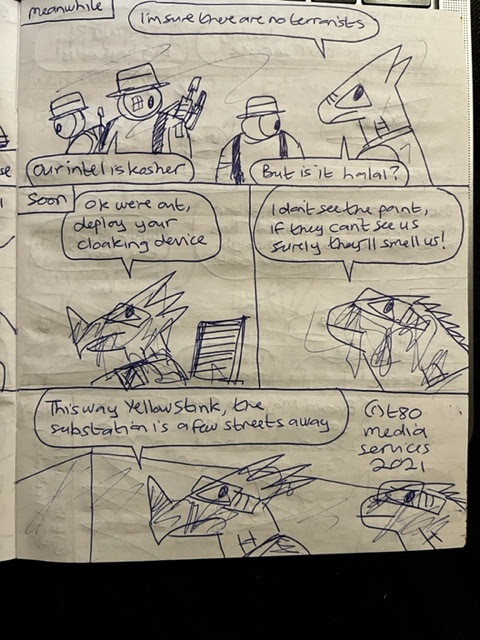 meanwhile
I'm sure there are no terrorists
Our intel is kasher
But is it halal?
Soon
Ok were out,
deploy your
cloaking device
I don't see the point,
if they can't see us
surely they'll smell us!
This way Yellowstink, the
substation is a few streets away
(C) t80
media
services
2021